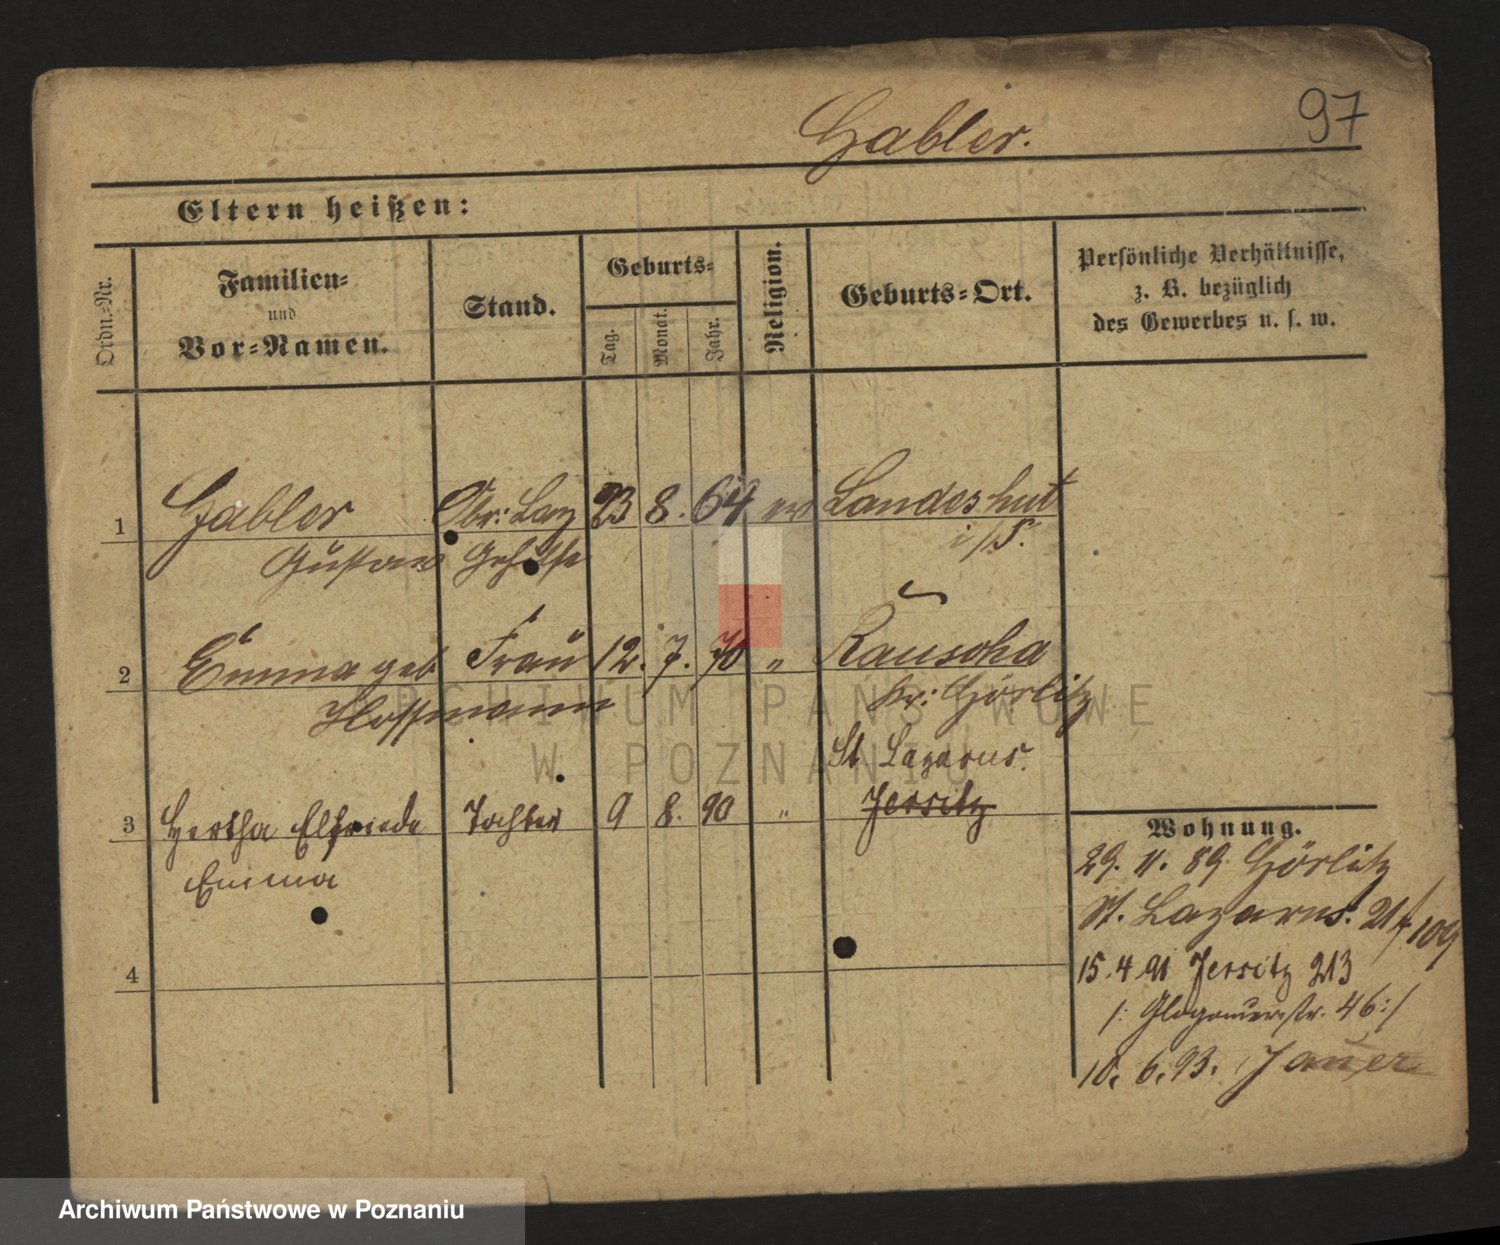 97
Gabler.
Eltern heißen:
Ordn.-Nr.
Familien-
und
Vor-Namen.
Stand.
Geburts-
Tag.
Monat.
Jahr.
Religion.
Geburts-Ort.
Persönliche Verhältnisse,
z. B. bezüglich
des Gewerbes u. s. w.
1 Gabler Obr: Laz 23 8. 64 ev Landeshut
Gustav Gehülfe i/S.
2 Emma geb Frau 12. 7. 70 " Rauscha
Hoffmann Kr: Görlitz
St Lazarus.
3 Hertha Elfriede Tochter 9 8. 90 " Jersitz
Emma
4
Wohnung.
29. 11. 89 Görlitz
St. Lazarus. 21/4 109
15.4.91 Jersitz 213
/: Glogauerstr. 46:/
10. 6. 93. Jauer
ARCHIWUM PAŃSTWOWE
W POZNANIU
Archiwum Państwowe w Poznaniu